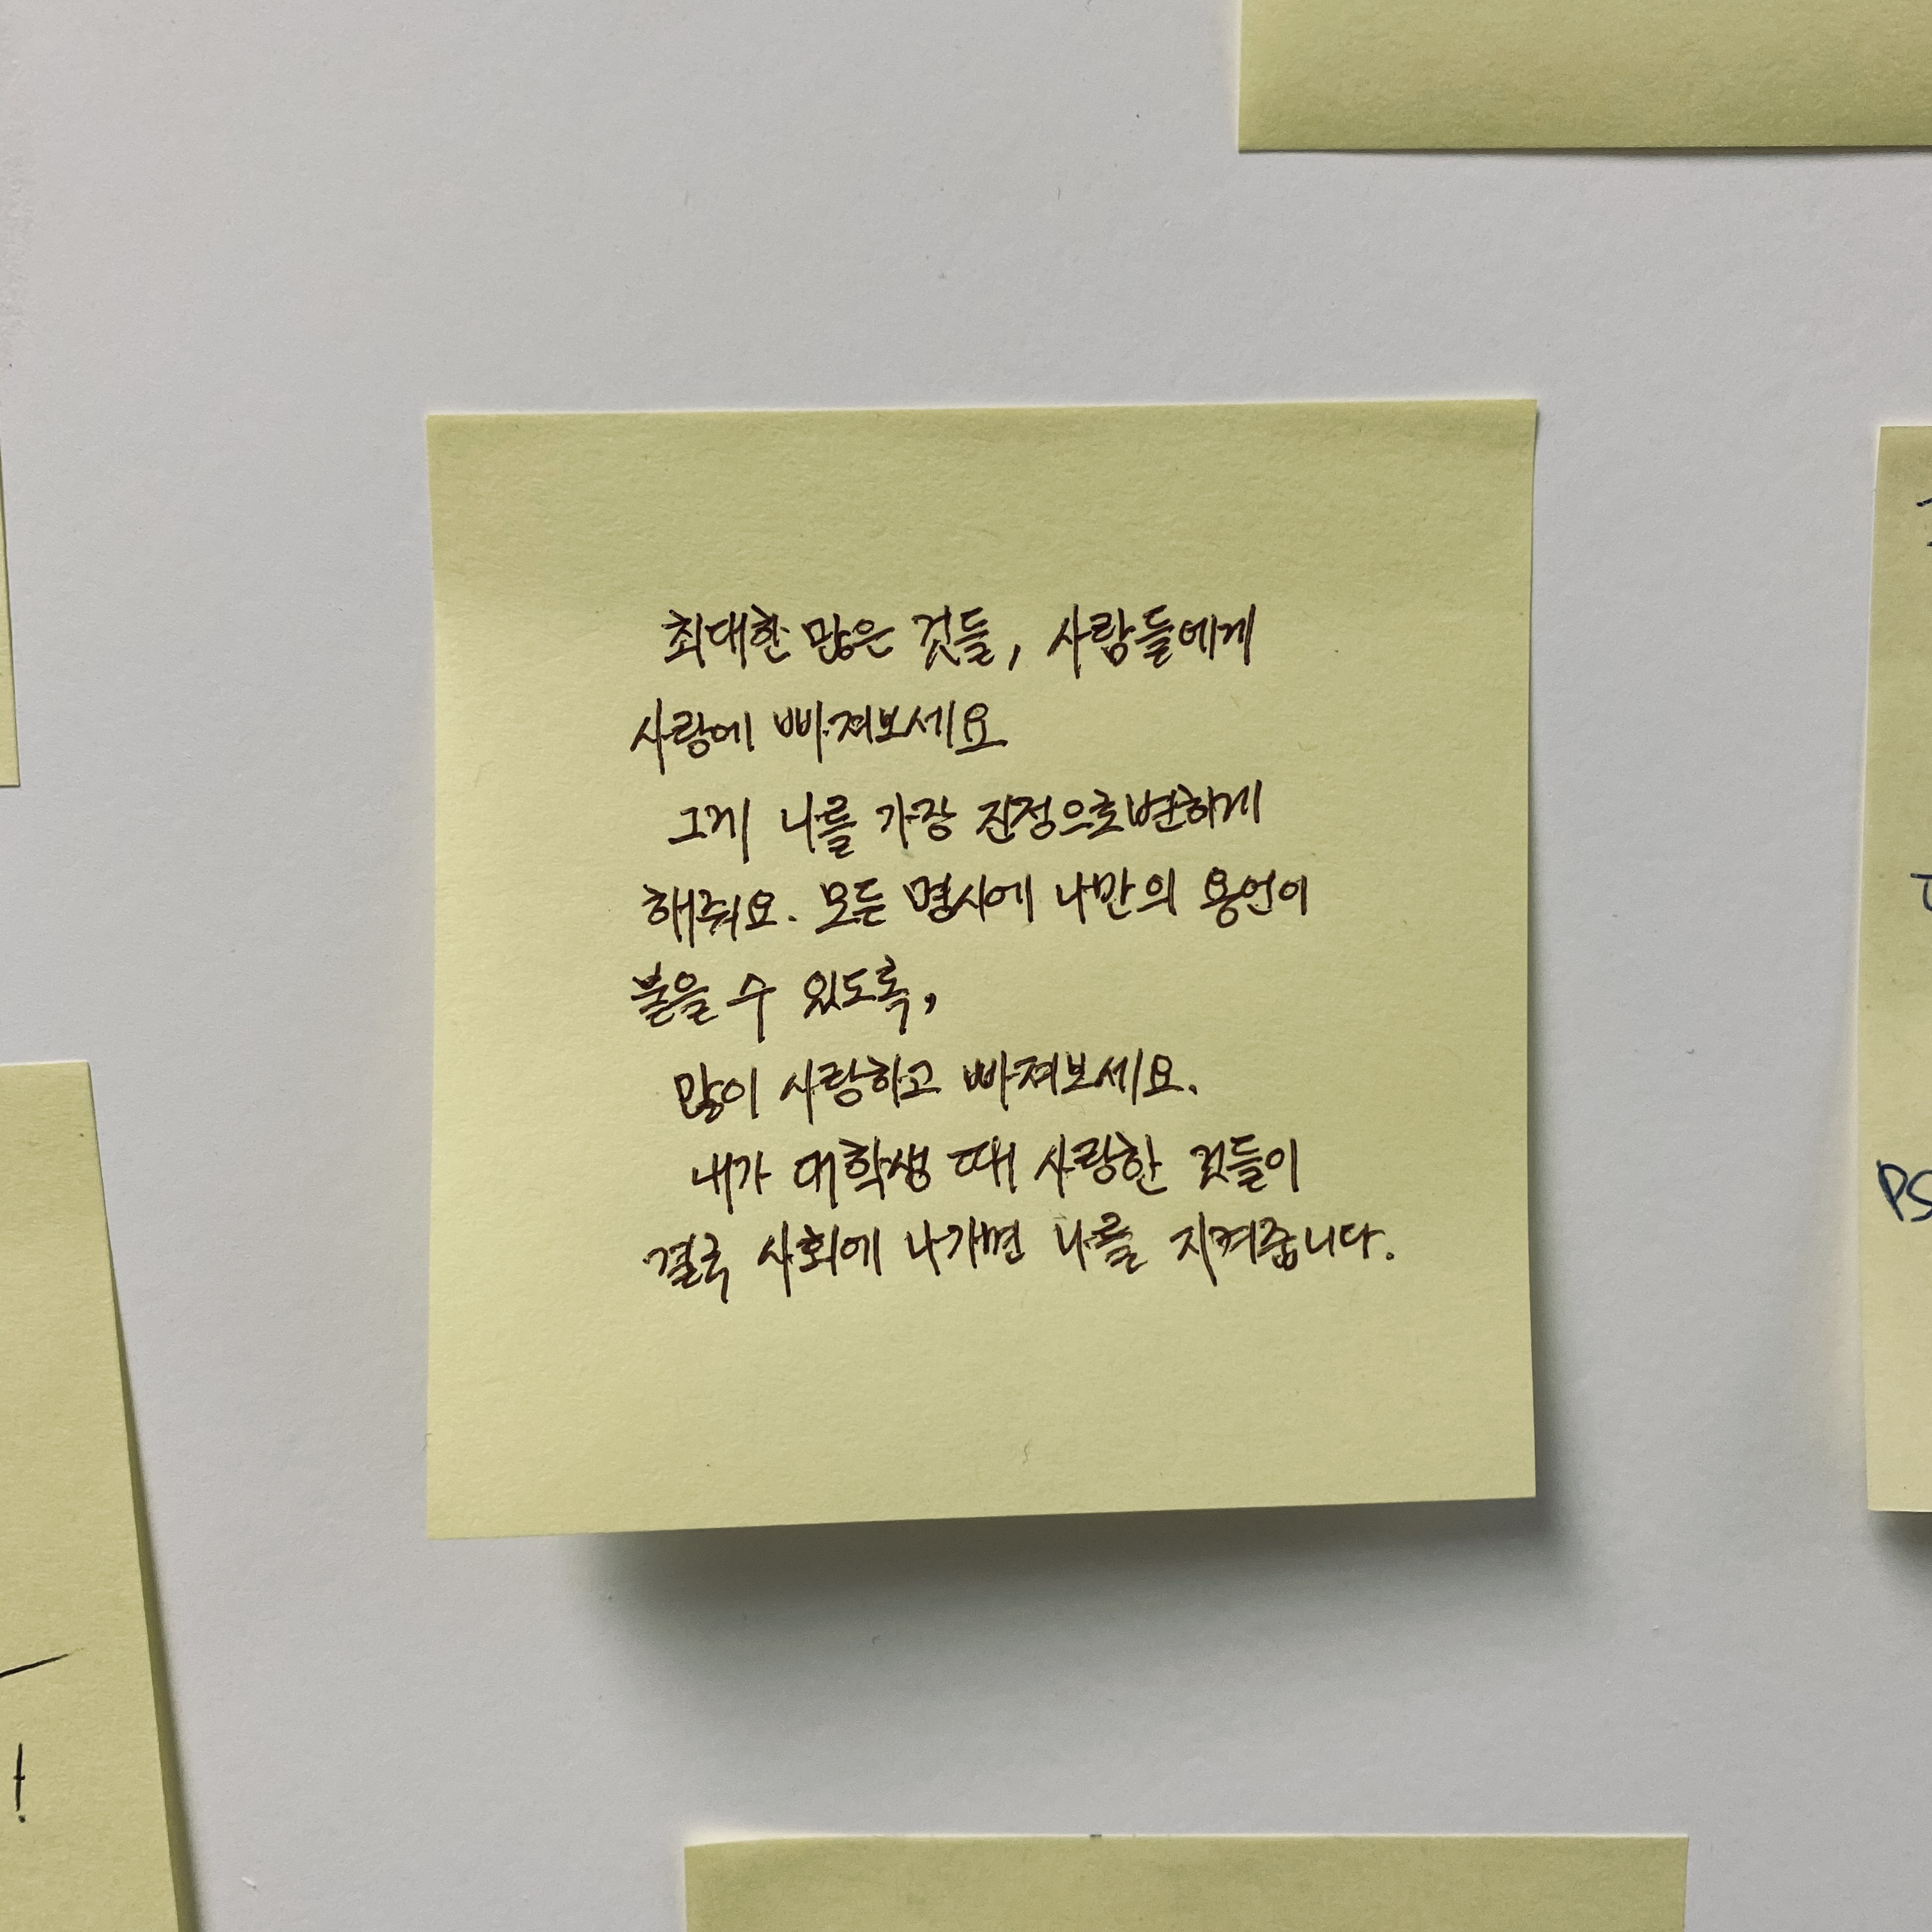 최대한 많은 것들, 사람들에게
사랑에 빠져보세요
그게 나를 가장 진정으로변하게
해줘요. 모든 명사에 나만의 용언이
붙을 수 있도록,
많이 사랑하고 빠져보세요.
내가 대학생 때 사랑한 것들이
결국 사회에 나가면 나를 지켜줍니다.
PS
!